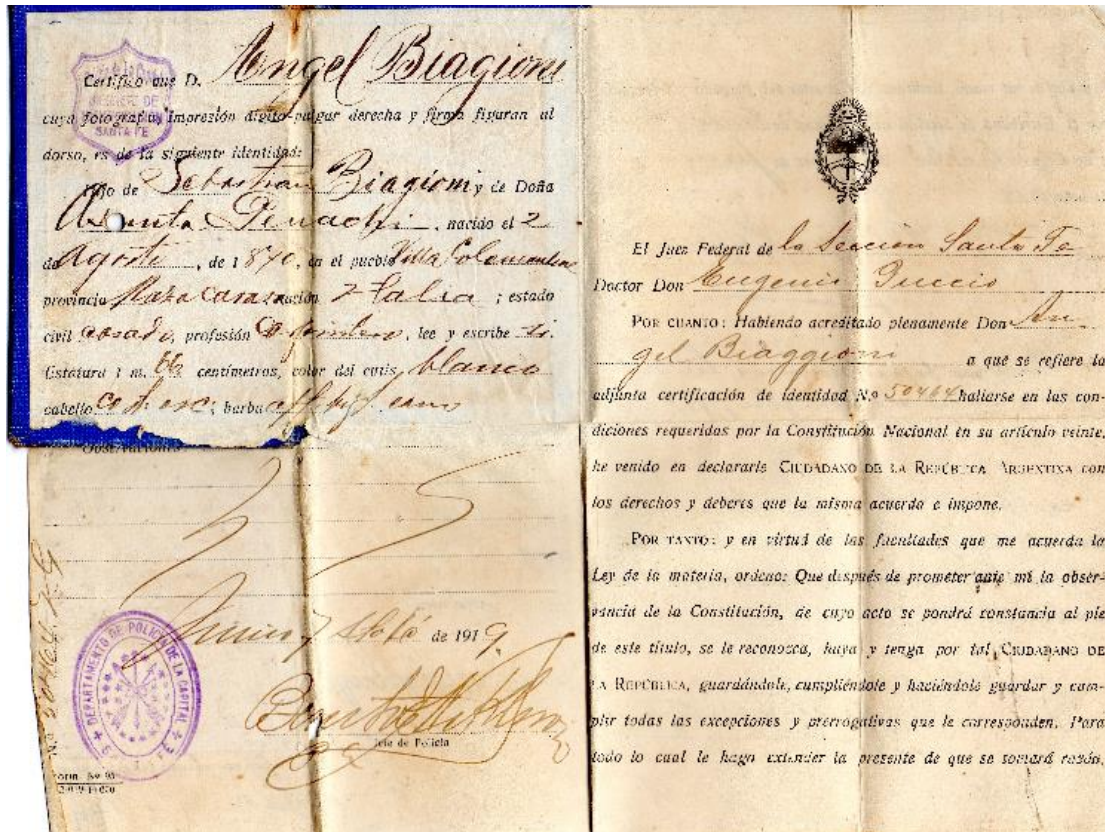 Certifico que D. Angel Biagioni
cuya fotografia, impresión dígito-pulgar derecha y firma figuran al
dorso, es de la siguiente identidad:
Hijo de Sebastian Biagioni y de Doña
nacido el 2
de Agosto, de 1870, en el pueblo Villa
provincia nación Italia ; estado
civil casado, profesión lee y escribe si.
Estatura 1 m. 66 centímetros, color del cutis, blanco
cabello cast. osc; barba cano
Observaciones
Junio 7 de 1919.
Jefe de Policía
DEPARTAMENTO DE POLICIA DE LA CAPITAL
SANTA FE
El Juez Federal de la Sección Santa Fe
Doctor Don Eugenio Puccio
POR CUANTO: Habiendo acreditado plenamente Don An-
gel Biaggioni a que se refiere la
adjunta certificación de identidad N.º 50464 hallarse en las con-
diciones requeridas por la Constitución Nacional en su artículo veinte,
he venido en declararle CIUDADANO DE LA REPÚBLICA ARGENTINA con
los derechos y deberes que la misma acuerda e impone.
POR TANTO: y en virtud de las facultades que me acuerda la
Ley de la materia, ordeno: Que después de prometer ante mí la obser-
vancia de la Constitución, de cuyo acto se pondrá constancia al pie
de este título, se le reconozca, haya y tenga por tal CIUDADANO DE
LA REPÚBLICA, guardándole, cumpliéndole y haciéndole guardar y cum-
plir todas las excepciones y prerrogativas que le corresponden. Para
todo lo cual le hago extender la presente de que se tomará razón,